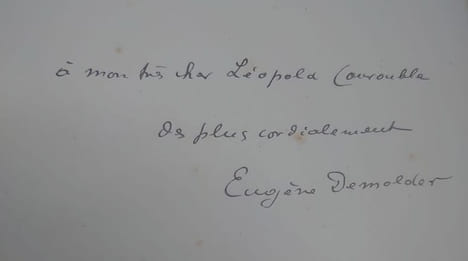 à mon très cher Léopold Courouble
des plus cordialement
Eugène Demolder